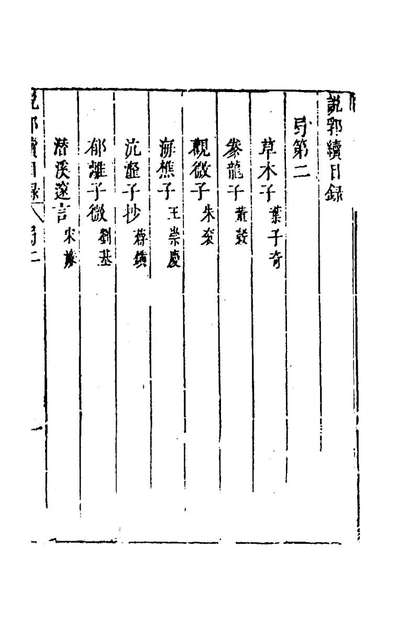 說郛續目録
号第二
草木子葉子奇
豢龍子董穀
觀微子朱衮
海樵子王崇慶
沆瀣子抄蔣鐄
郁離子微劉基
潛溪邃言宋濂
說郛續目録 号二